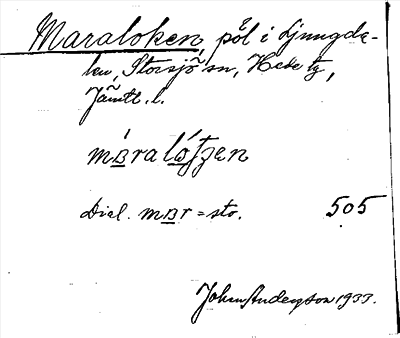 Maraloken, pöl i Ljungda-
len, Storsjö sn, Hede tg,
Jämtl. l.
mɑ́ralǿʃʒen
Dial. mɑr = sto.
505
Johan Anderson 1933.